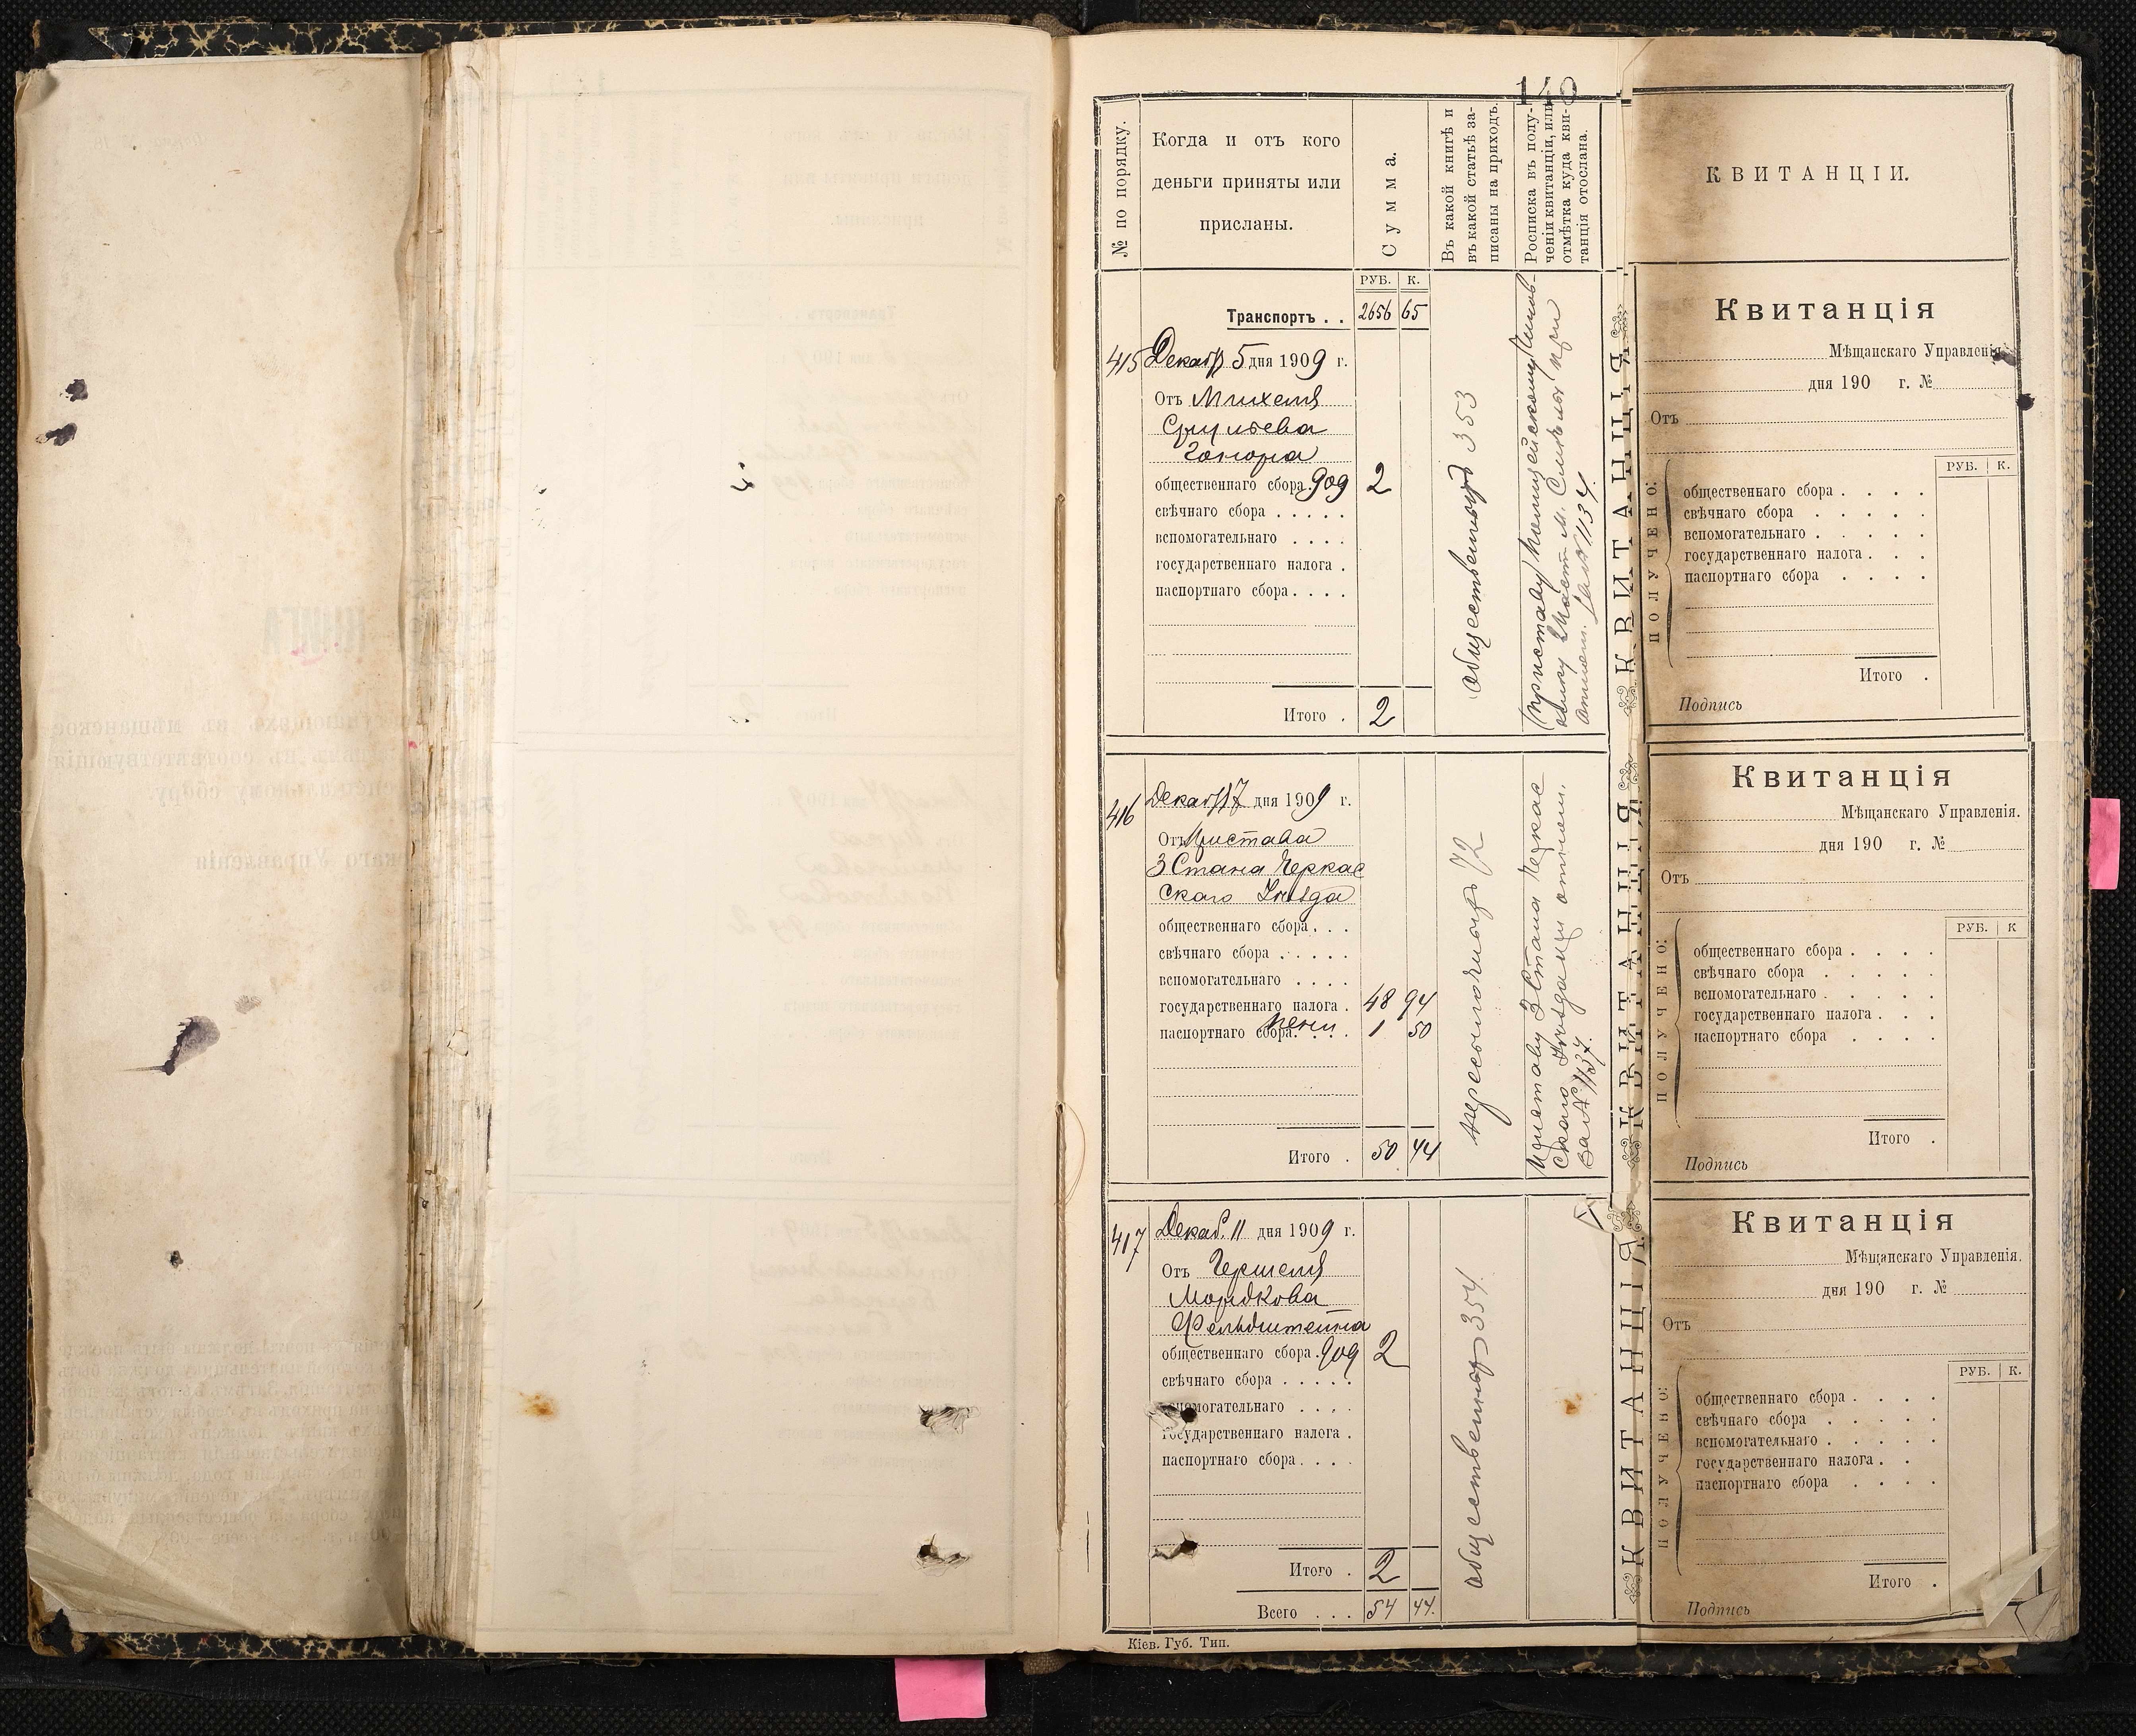 140
№ по порядку.
Когда и отъ кого
деньги приняты или
присланы.
Сумма.
Въ какой книгѣ и
въ какой статьѣ за-
писаны на приходъ.
Росписка въ полу-
ченіи квитанціи, или
отмѣтка куда кви-
танція отослана.
РУБ. К.
Транспортъ . . 2656 65
415 Декабр 5 дня 1909 г.
Отъ Михеля
Сруліева
Гонора
общественнаго сбора 909 2
свѣчнаго сбора . . . . .
вспомогательнаго . . . .
государственнаго налога .
паспортнаго сбора . . . .
Итого . 2
общественную 353
Приставу
2 части м. Смѣлы при
отнош. за № 1134.
416 Декабр 7 дня 1909 г.
Отъ Пристава
3 Стана Черкас
скаго Уѣзда
общественнаго сбора . . .
свѣчнаго сбора . . . . .
вспомогательнаго . . . .
государственнаго налога . 48 94
паспортнаго сбора. пени . 1 50
Итого . 50 44
72
Приставу 3 Стана Черкас
скаго Уѣзда при отнош.
за № 1137.
417 Декаб. 11 дня 1909 г.
Отъ Гершеля
Мордкова
Фельдштейна
общественнаго сбора . 909 2
свѣчнаго сбора . . . . .
вспомогательнаго . . . .
государственнаго налога .
паспортнаго сбора . . . .
Итого . 2
Всего . . . 54 44.
общественную 354.
Кіев. Губ. Тип.
КВИТАНЦІЯ
КВИТАНЦІЯ
КВИТАНЦІЯ
КВИТАНЦІИ.
Квитанція
Мѣщанскаго Управленія.
дня 190 г. №
Отъ
РУБ. К.
ПОЛУЧЕНО:
общественнаго сбора . . . .
свѣчнаго сбора . . . . .
вспомогательнаго . . . . .
государственнаго налога . . .
паспортнаго сбора . . . .
Итого .
Подпись
Квитанція
Мѣщанскаго Управленія.
дня 190 г. №
Отъ
РУБ. К
ПОЛУЧЕНО:
общественнаго сбора . . . .
свѣчнаго сбора . . . . .
вспомогательнаго . . . . .
государственнаго налога . . .
паспортнаго сбора . . . .
Итого .
Подпись
Квитанція
Мѣщанскаго Управленія.
дня 190 г. №
Отъ
РУБ. К.
ПОЛУЧЕНО:
общественнаго сбора . . . .
свѣчнаго сбора . . . . .
вспомогательнаго . . . . .
государственнаго налога . .
паспортнаго сбора . . . .
Итого .
Подпись